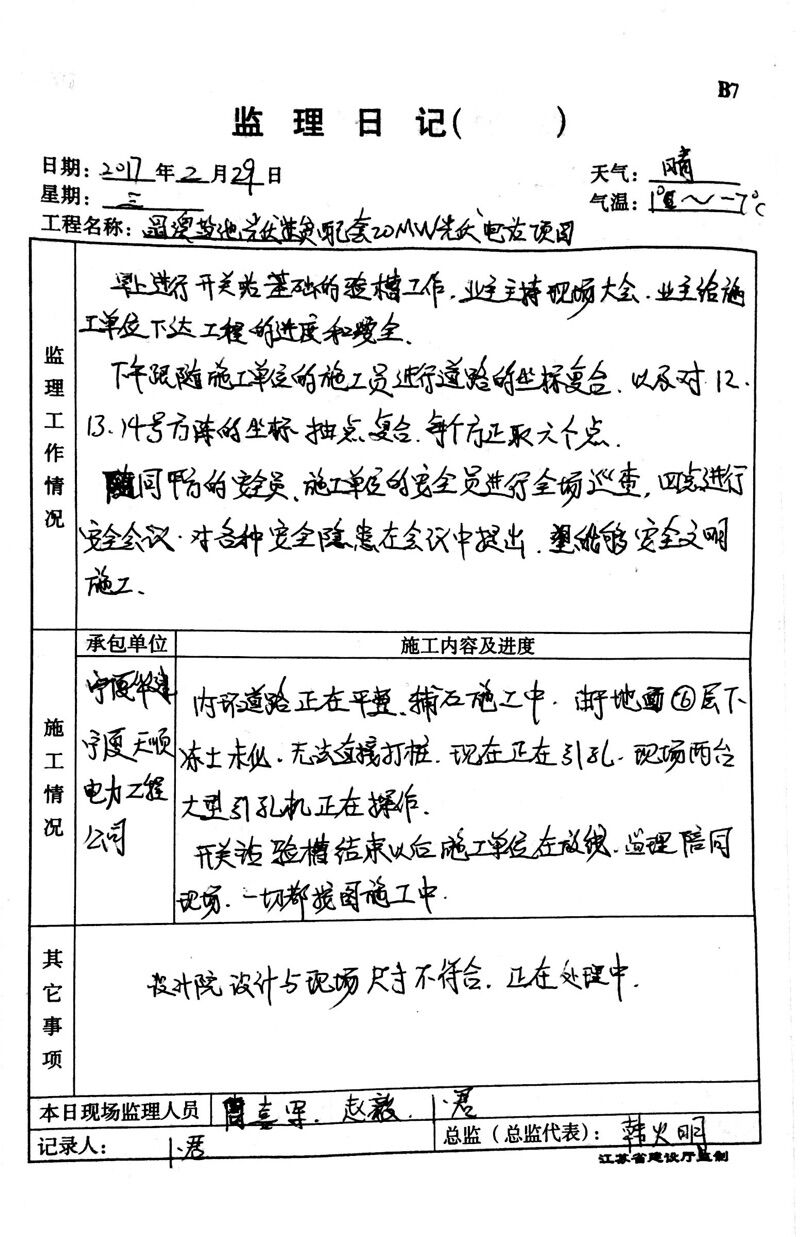 B7
监 理 日 记( )
日期: 2017 年 2 月 29 日
天气: 晴
星期: 三
气温: ~-7℃
工程名称: 配套20MW光伏电站项目
监理工作情况
早上进行开关站基础的验槽工作,业主主持现场大会.业主给施
工单位下达工程的进度和安全.
下午跟随施工单位的施工员进行道路的坐标复合.以及对12.
13.14号方阵的坐标抽点复合.每个方正取六个点.
随同甲方的安全员、施工单位的安全员进行全场巡查,四点进行
安全会议.对各种安全隐患在会议中提出.安全文明
施工.
施工情况
承包单位
施工内容及进度
宁夏华建
宁夏天顺
电力工程
公司
内环道路正在平整、铺石施工中.由于地面⑥层下
冻土未化.无法直接打桩.现在正在引孔.现场两台
大型引孔机正在操作.
开关站验槽结束以后施工单位在放线.监理陪同
现场.一切都按图施工中.
其它事项
设计院设计与现场尺寸不符合.正在处理中.
本日现场监理人员
曹喜军. 赵毅. 卜君
记录人: 卜君
总监(总监代表): 韩火明
江苏省建设厅监制